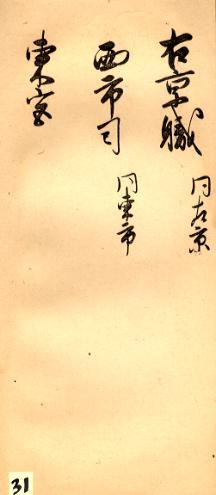 右京職 同左京
西市司 同東市
東宮
31